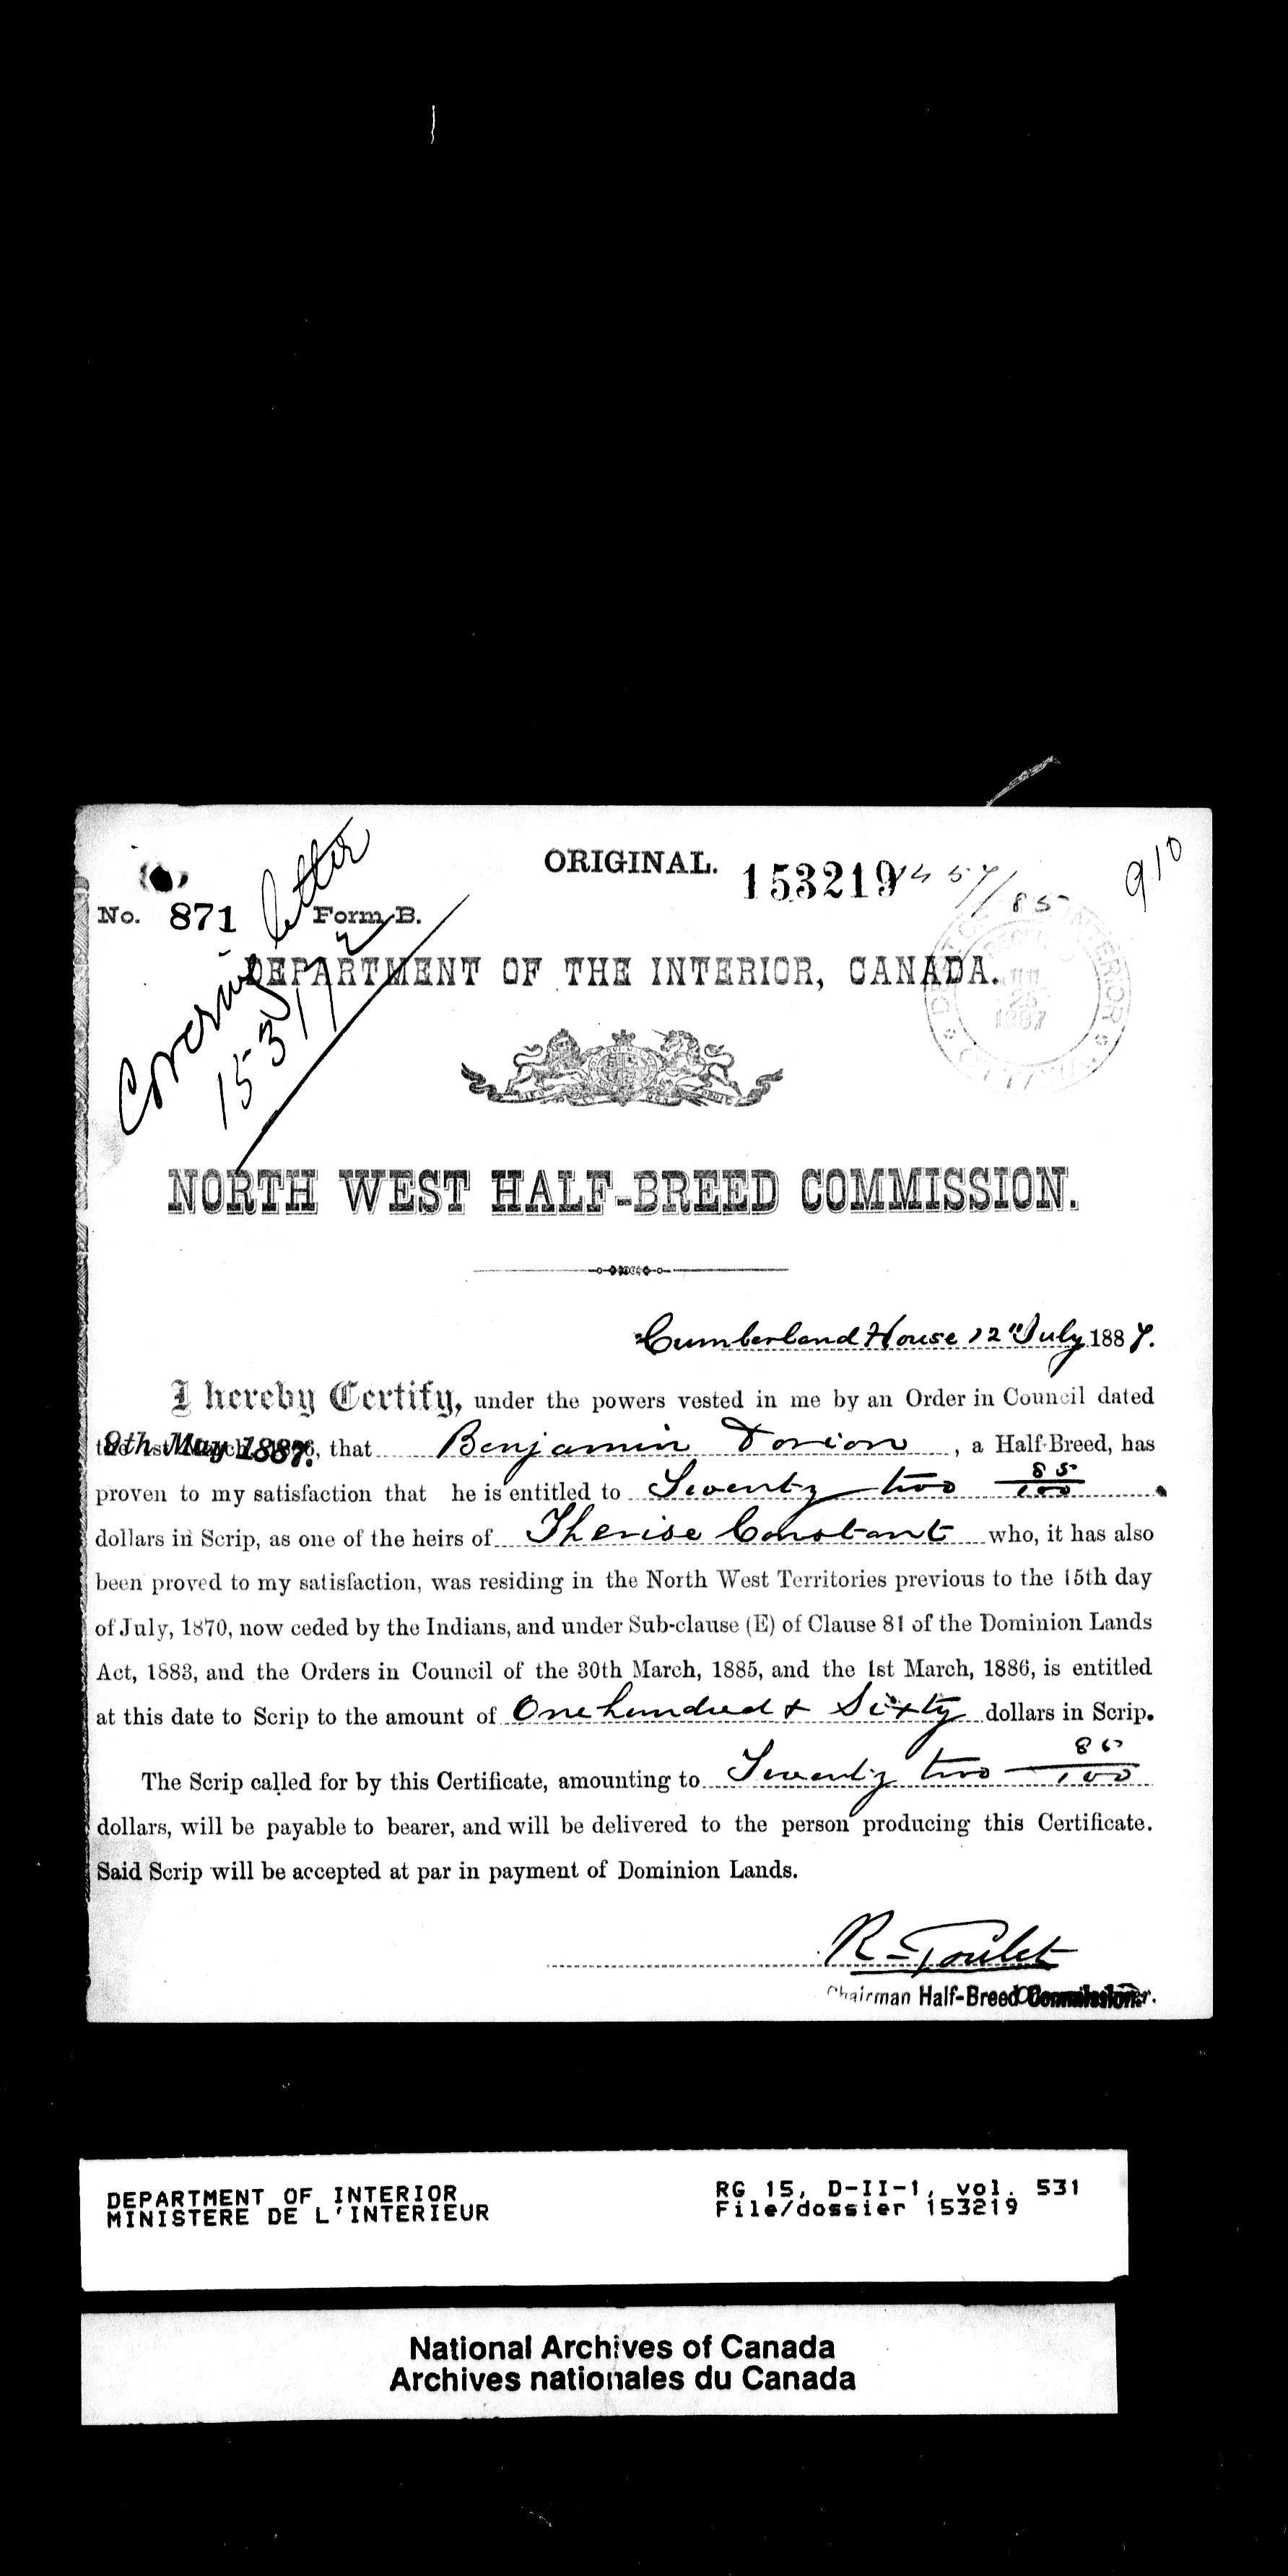 ORIGINAL. 153219
910
No. 871 Form B.
Covering letter
153172
DEPARTMENT OF THE INTERIOR, CANADA.
DEPT OF INTERIOR
25
1887
NORTH WEST HALF-BREED COMMISSION.
Cumberland House 12th July 1887.
I hereby Certify, under the powers vested in me by an Order in Council dated
9th May 1887, that Benjamin Dorion, a Half-Breed, has
proven to my satisfaction that he is entitled to Seventy two 85/100
dollars in Scrip, as one of the heirs of Therise Constant who, it has also
been proved to my satisfaction, was residing in the North West Territories previous to the 15th day
of July, 1870, now ceded by the Indians, and under Sub-clause (E) of Clause 81 of the Dominion Lands
Act, 1883, and the Orders in Council of the 30th March, 1885, and the 1st March, 1886, is entitled
at this date to Scrip to the amount of One hundred & Sixty dollars in Scrip.
The Scrip called for by this Certificate, amounting to Seventy two 85/100
dollars, will be payable to bearer, and will be delivered to the person producing this Certificate.
Said Scrip will be accepted at par in payment of Dominion Lands.
R Goulet
Chairman Half-Breed
DEPARTMENT OF INTERIOR RG 15, D-II-1, vol. 531
MINISTERE DE L'INTERIEUR File/dossier 153219
National Archives of Canada
Archives nationales du Canada